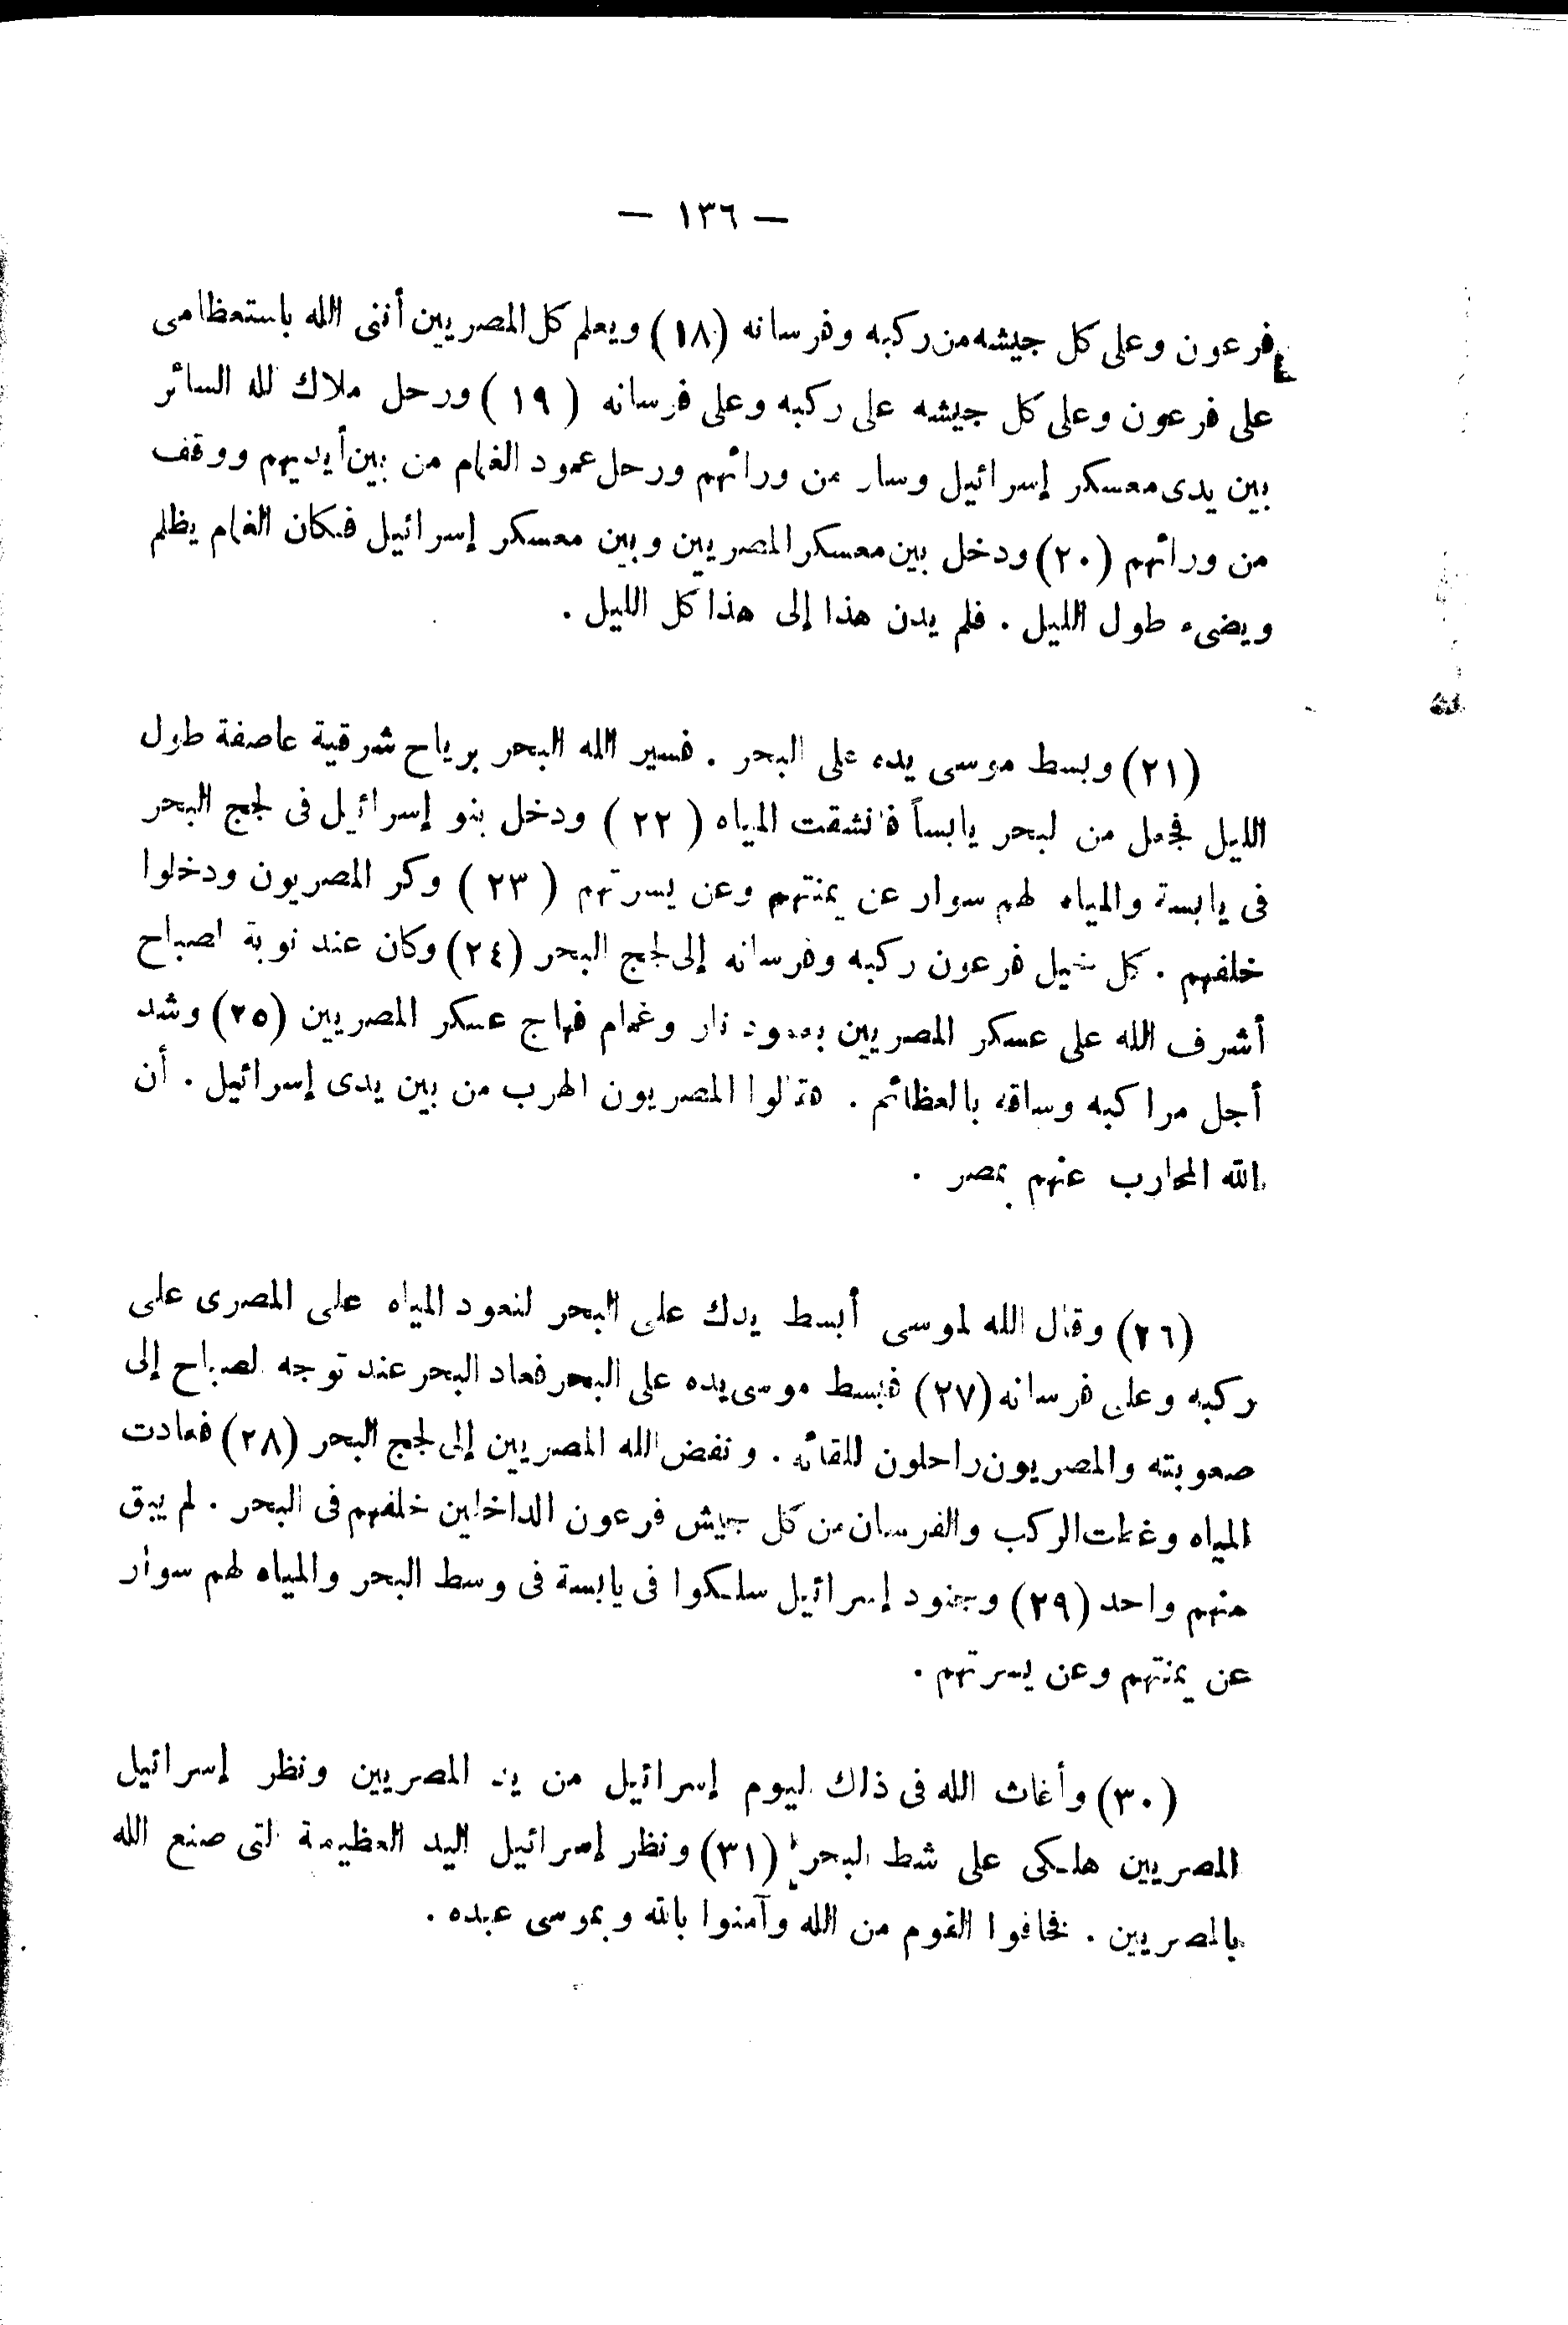 — ١٣٦ —
فرعون وعلى كل جيشه من ركبه وفرسانه (١٨) ويعلم كل المصريين أننى الله باستعظامى
على فرعون وعلى كل جيشه على ركبه وعلى فرسانه (١٩) ورحل ملاك الله السائر
بين يدى معسكر إسرائيل وسار من ورائهم ورحل عمود الغمام من بين أيديهم ووقف
من ورائهم (٢٠) ودخل بين معسكر المصريين وبين معسكر إسرائيل فكان الغمام يظلم
ويضىء طول الليل . فلم يدن هذا إلى هذا كل الليل .
(٢١) وبسط موسى يده على البحر . فسير الله البحر برياح شرقية عاصفة طول
الليل فجعل من البحر يابساً فانشقت المياه (٢٢) ودخل بنو إسرائيل فى لجج البحر
فى يابسة والمياه لهم سوار عن يمنتهم وعن يسرتهم (٢٣) وكر المصريون ودخلوا
خلفهم . كل خيل فرعون ركبه وفرسانه إلى لجج البحر (٢٤) وكان عند نوبة الصباح
أشرف الله على عسكر المصريين بعمود نار وغمام فهاج عسكر المصريين (٢٥) وشد
أجل مراكبه وساقه بالعظائم . فقالوا المصريون الهرب من بين يدى إسرائيل . أن
الله المحارب عنهم بمصر .
(٢٦) وقال الله لموسى أبسط يدك على البحر لتعود المياه على المصرى على
ركبه وعلى فرسانه (٢٧) فبسط موسى يده على البحر فعاد البحر عند توجه الصباح إلى
صعوبته والمصريون راحلون للقائه . ونفض الله المصريين إلى لجج البحر (٢٨) فعادت
المياه وغطت الركب والفرسان من كل جيش فرعون الداخلين خلفهم فى البحر . لم يبق
منهم واحد (٢٩) وجنود إسرائيل سلكوا فى يابسة فى وسط البحر والمياه لهم سوار
عن يمنتهم وعن يسرتهم .
(٣٠) وأغاث الله فى ذلك اليوم إسرائيل من يد المصريين ونظر إسرائيل
المصريين هلكى على شط البحر (٣١) ونظر إسرائيل اليد العظيمة التى صنع الله
بالمصريين . فخافوا القوم من الله وآمنوا بالله وبموسى عبده .